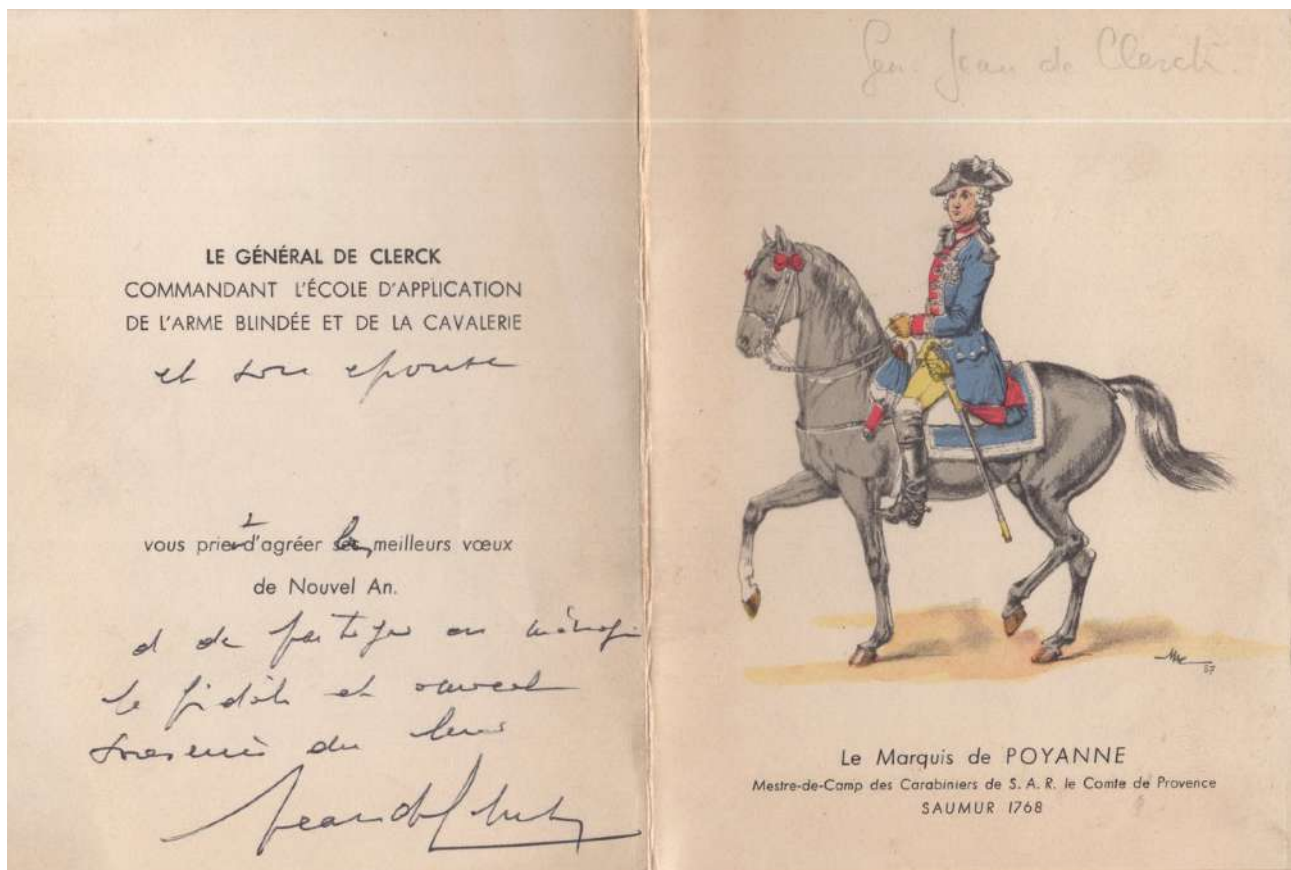 LE GÉNÉRAL DE CLERCK
COMMANDANT L'ÉCOLE D'APPLICATION
DE L'ARME BLINDÉE ET DE LA CAVALERIE
et son epouse
vous prient d'agréer les meilleurs vœux
de Nouvel An.
et de partager en
le fidèle et
souvenir du leur
Jean de Clerck
Gen. Jean de Clerck.
57
Le Marquis de POYANNE
Mestre-de-Camp des Carabiniers de S. A. R. le Comte de Provence
SAUMUR 1768